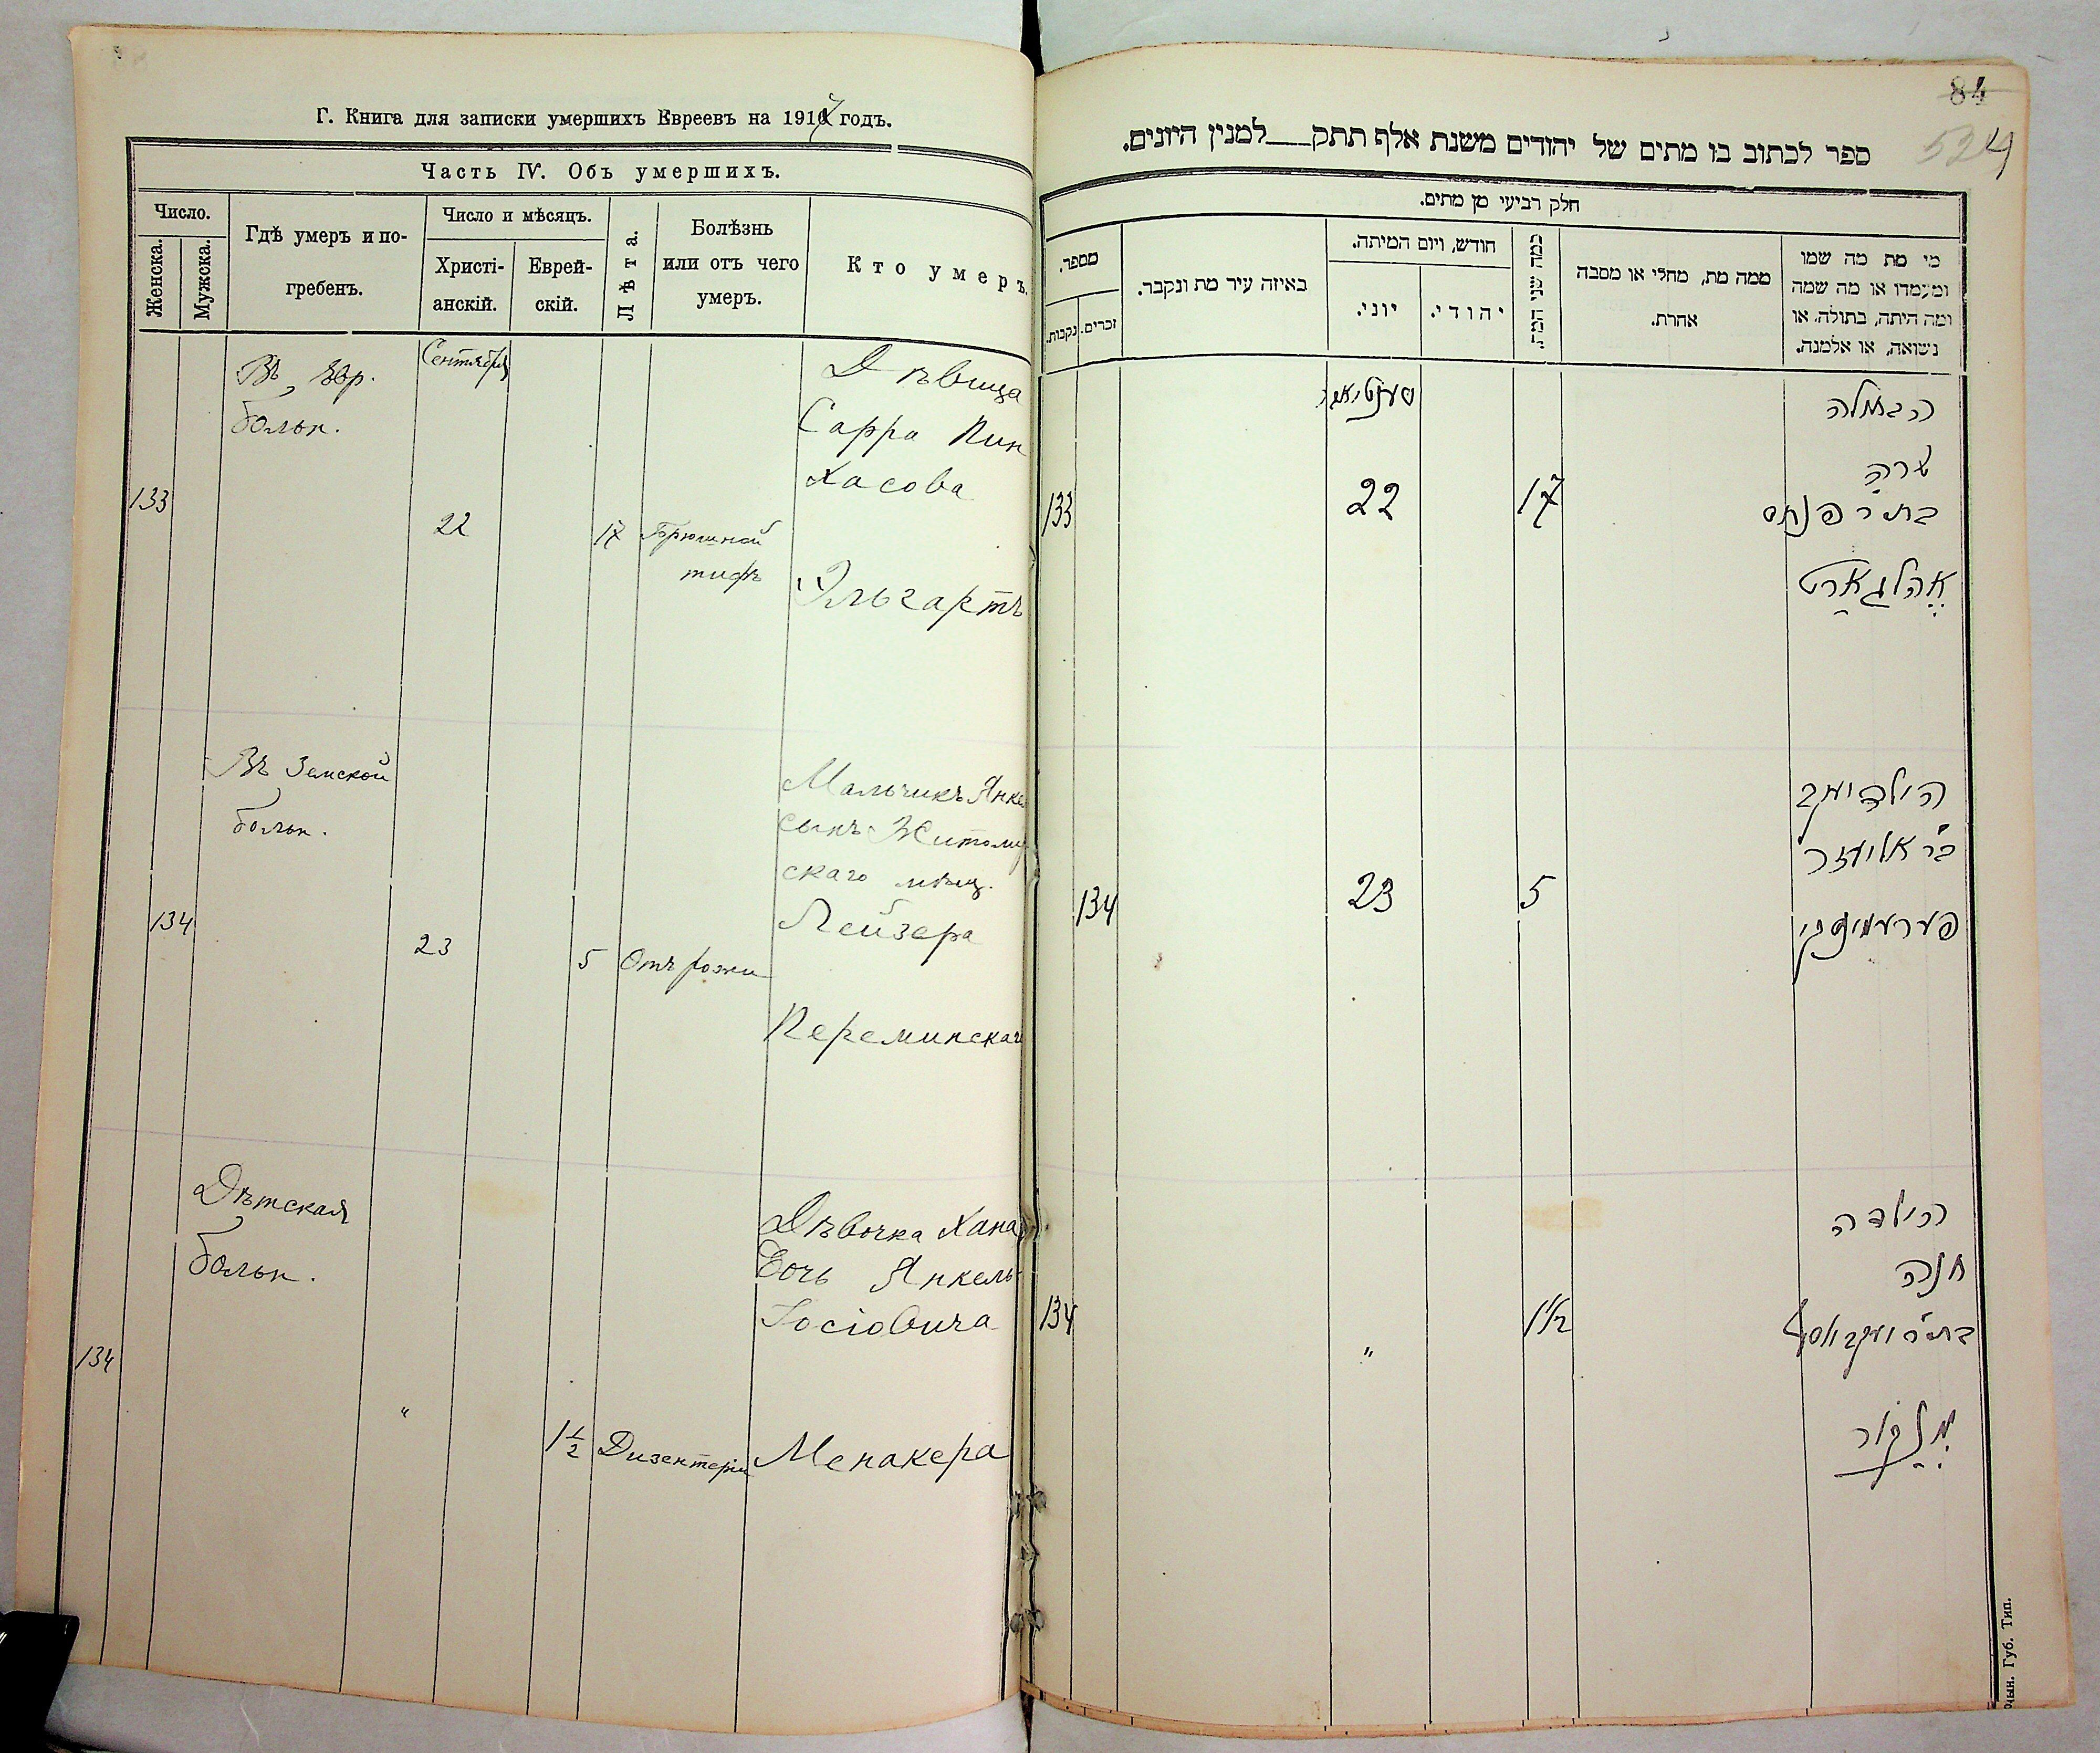 Г. Книга для записки умершихъ Евреевъ на 1917 годъ.
Часть IV. Объ умершихъ.
Число.
Женска.
Мужска.
Гдѣ умеръ и по-
гребенъ.
Число и мѣсяцъ.
Христі-
анскій.
Еврей-
скій.
Лѣта.
Болѣзнь
или отъ чего
умеръ.
Кто умеръ.
Въ Евр.
больн.
Сентября
133
22
17
Брюшной
тифъ
Дѣвица
Сарра Пин
хасова
Эльгартъ
Въ Земской
больн.
134
23
5
Отъ рожи
Мальчикъ Янкел
сынъ Житомир
скаго мѣщ.
Лейзера
Переминскаго
Дѣтская
больн.
134
"
1 1/2
Дизентерія
Дѣвочка Хана
Дочь Янкель
Іосіовича
Менакера
84
524
ספר לכתוב בו מתים של יהודים משנת אלף תתק___למנין היונים.
חלק רביעי מן מתים.
מספר.
נקבות.
זכרים.
באיזה עיר מת ונקבר.
חודש, ויום המיתה.
יוני.
יהודי.
כמה שני המת.
ממה מת, מחלי או מסבה
אחרת.
מי מת מה שמו
ומעמדו או מה שמה
ומה היתה, בתולה, או
נשואה, או אלמנה.
133
22
17
הבתולה
שרה
בת ר' פנחס
עהלגארט
134
23
5
הילד יעקב
בר אליעזר
פערעמינסקי
134
"
1 1/2
הילדה
חנה
בת ר' יעקב יוסף
מנקר
Губ. Тип.